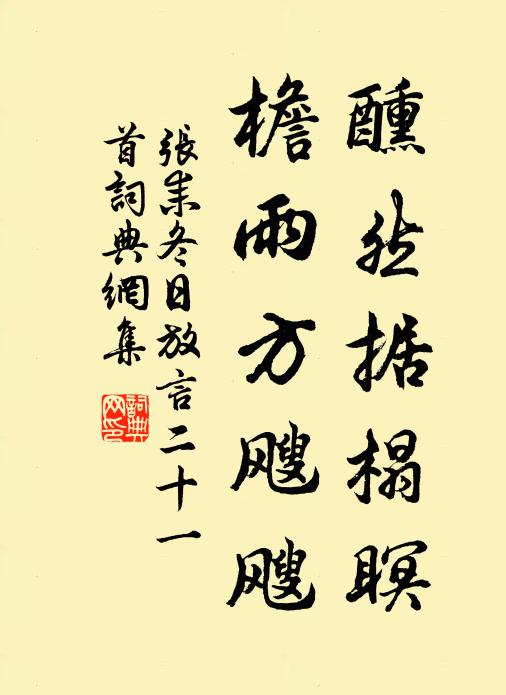 醺然据榻瞑
檐雨方颼颼
張耒冬日放言二十一
首詞典網集
詞典
网印